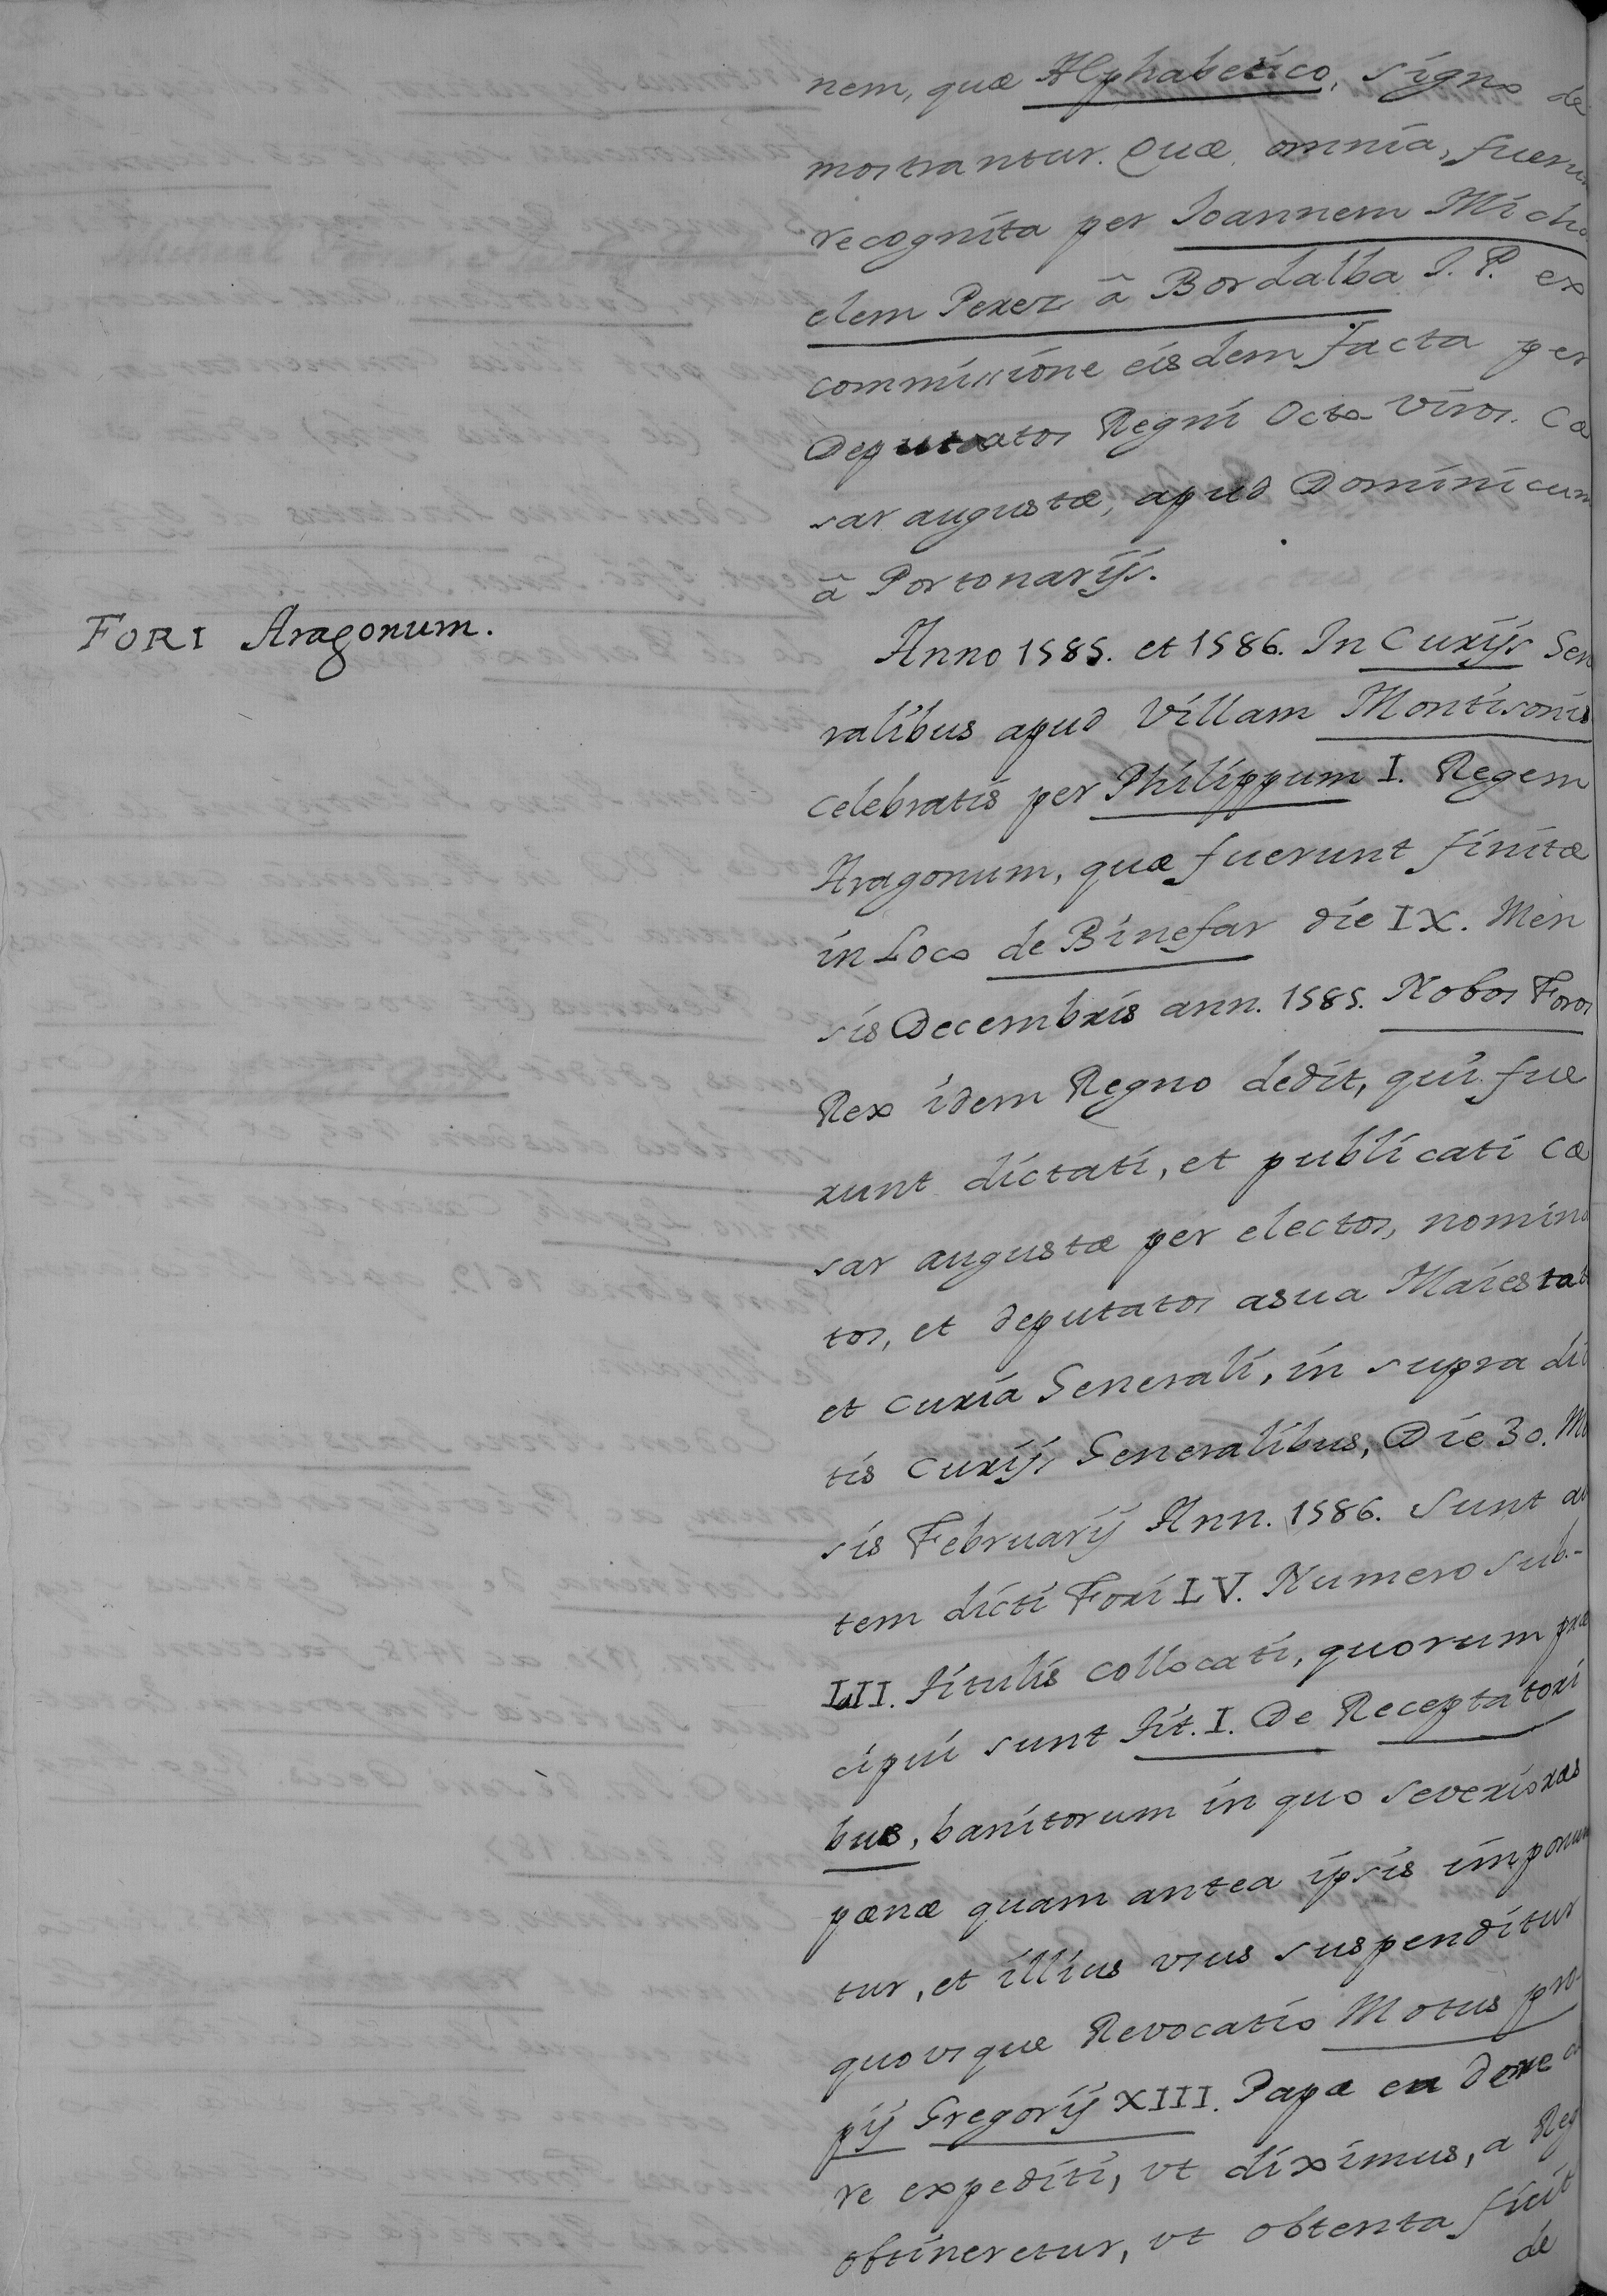 nem, quæ Alphabetico, signo de
mostrantur. Quæ omnia, fuerun
recognita per Ioannem Micha
elem Perez â Bordalba I. P. ex
commissione eisdem facta per
Deputatos Regni Octo Viros. Cæ
sar augustæ, apud Dominicum
â Portonarijs.
FORI Aragonum.
Anno 1585. et 1586. In Curijs Gen
ralibus apud Villam Montisonis
celebratis per Philippum I. Regem
Aragonum, quæ fuerunt finitæ
in Loco de Binefar die IX. Men
sis Decembris ann. 1585. Nobos Foros
Rex idem Regno dedit, qui fue
runt dictati, et publicati Cæ
sar augustæ per electos, nomina
tos, et deputatos a sua Maiestat
et Curia Generali, in supra dic
tis Curijs Generalibus, Die 30. M
sis Februarij Ann. 1586. Sunt au
tem dicti Fori LV. Numero sub-
LII. Titulis collocati, quorum præ
cipui sunt Tit. I. De Receptatori
bus, banitorum in quo severioræs
pænæ quam antea ipsis imponun
tur, et illius vsus suspenditur
quovsque Revocatio Motus pro-
pij Gregorij XIII. Papæ ea de
re expediti, vt diximus, a Reg
obtineretur, vt obtenta fuit
de